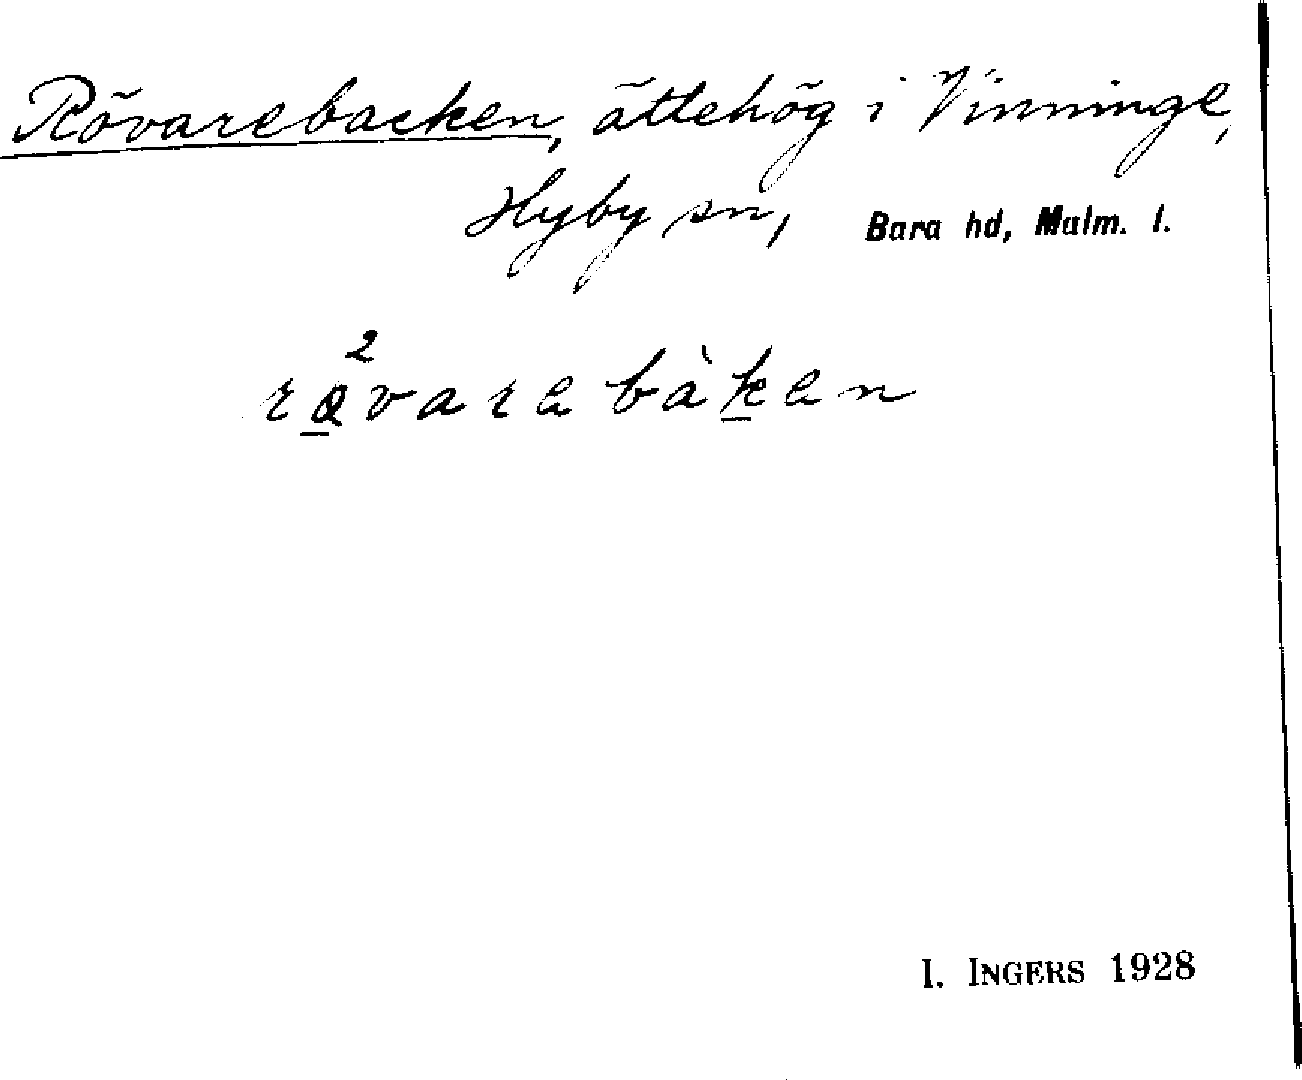 Rövarebacken, ättehög i Vinninge,
Hyby sn, Bara hd, Malm. l.
rö̱²varebàḵen
I. INGERS 1928